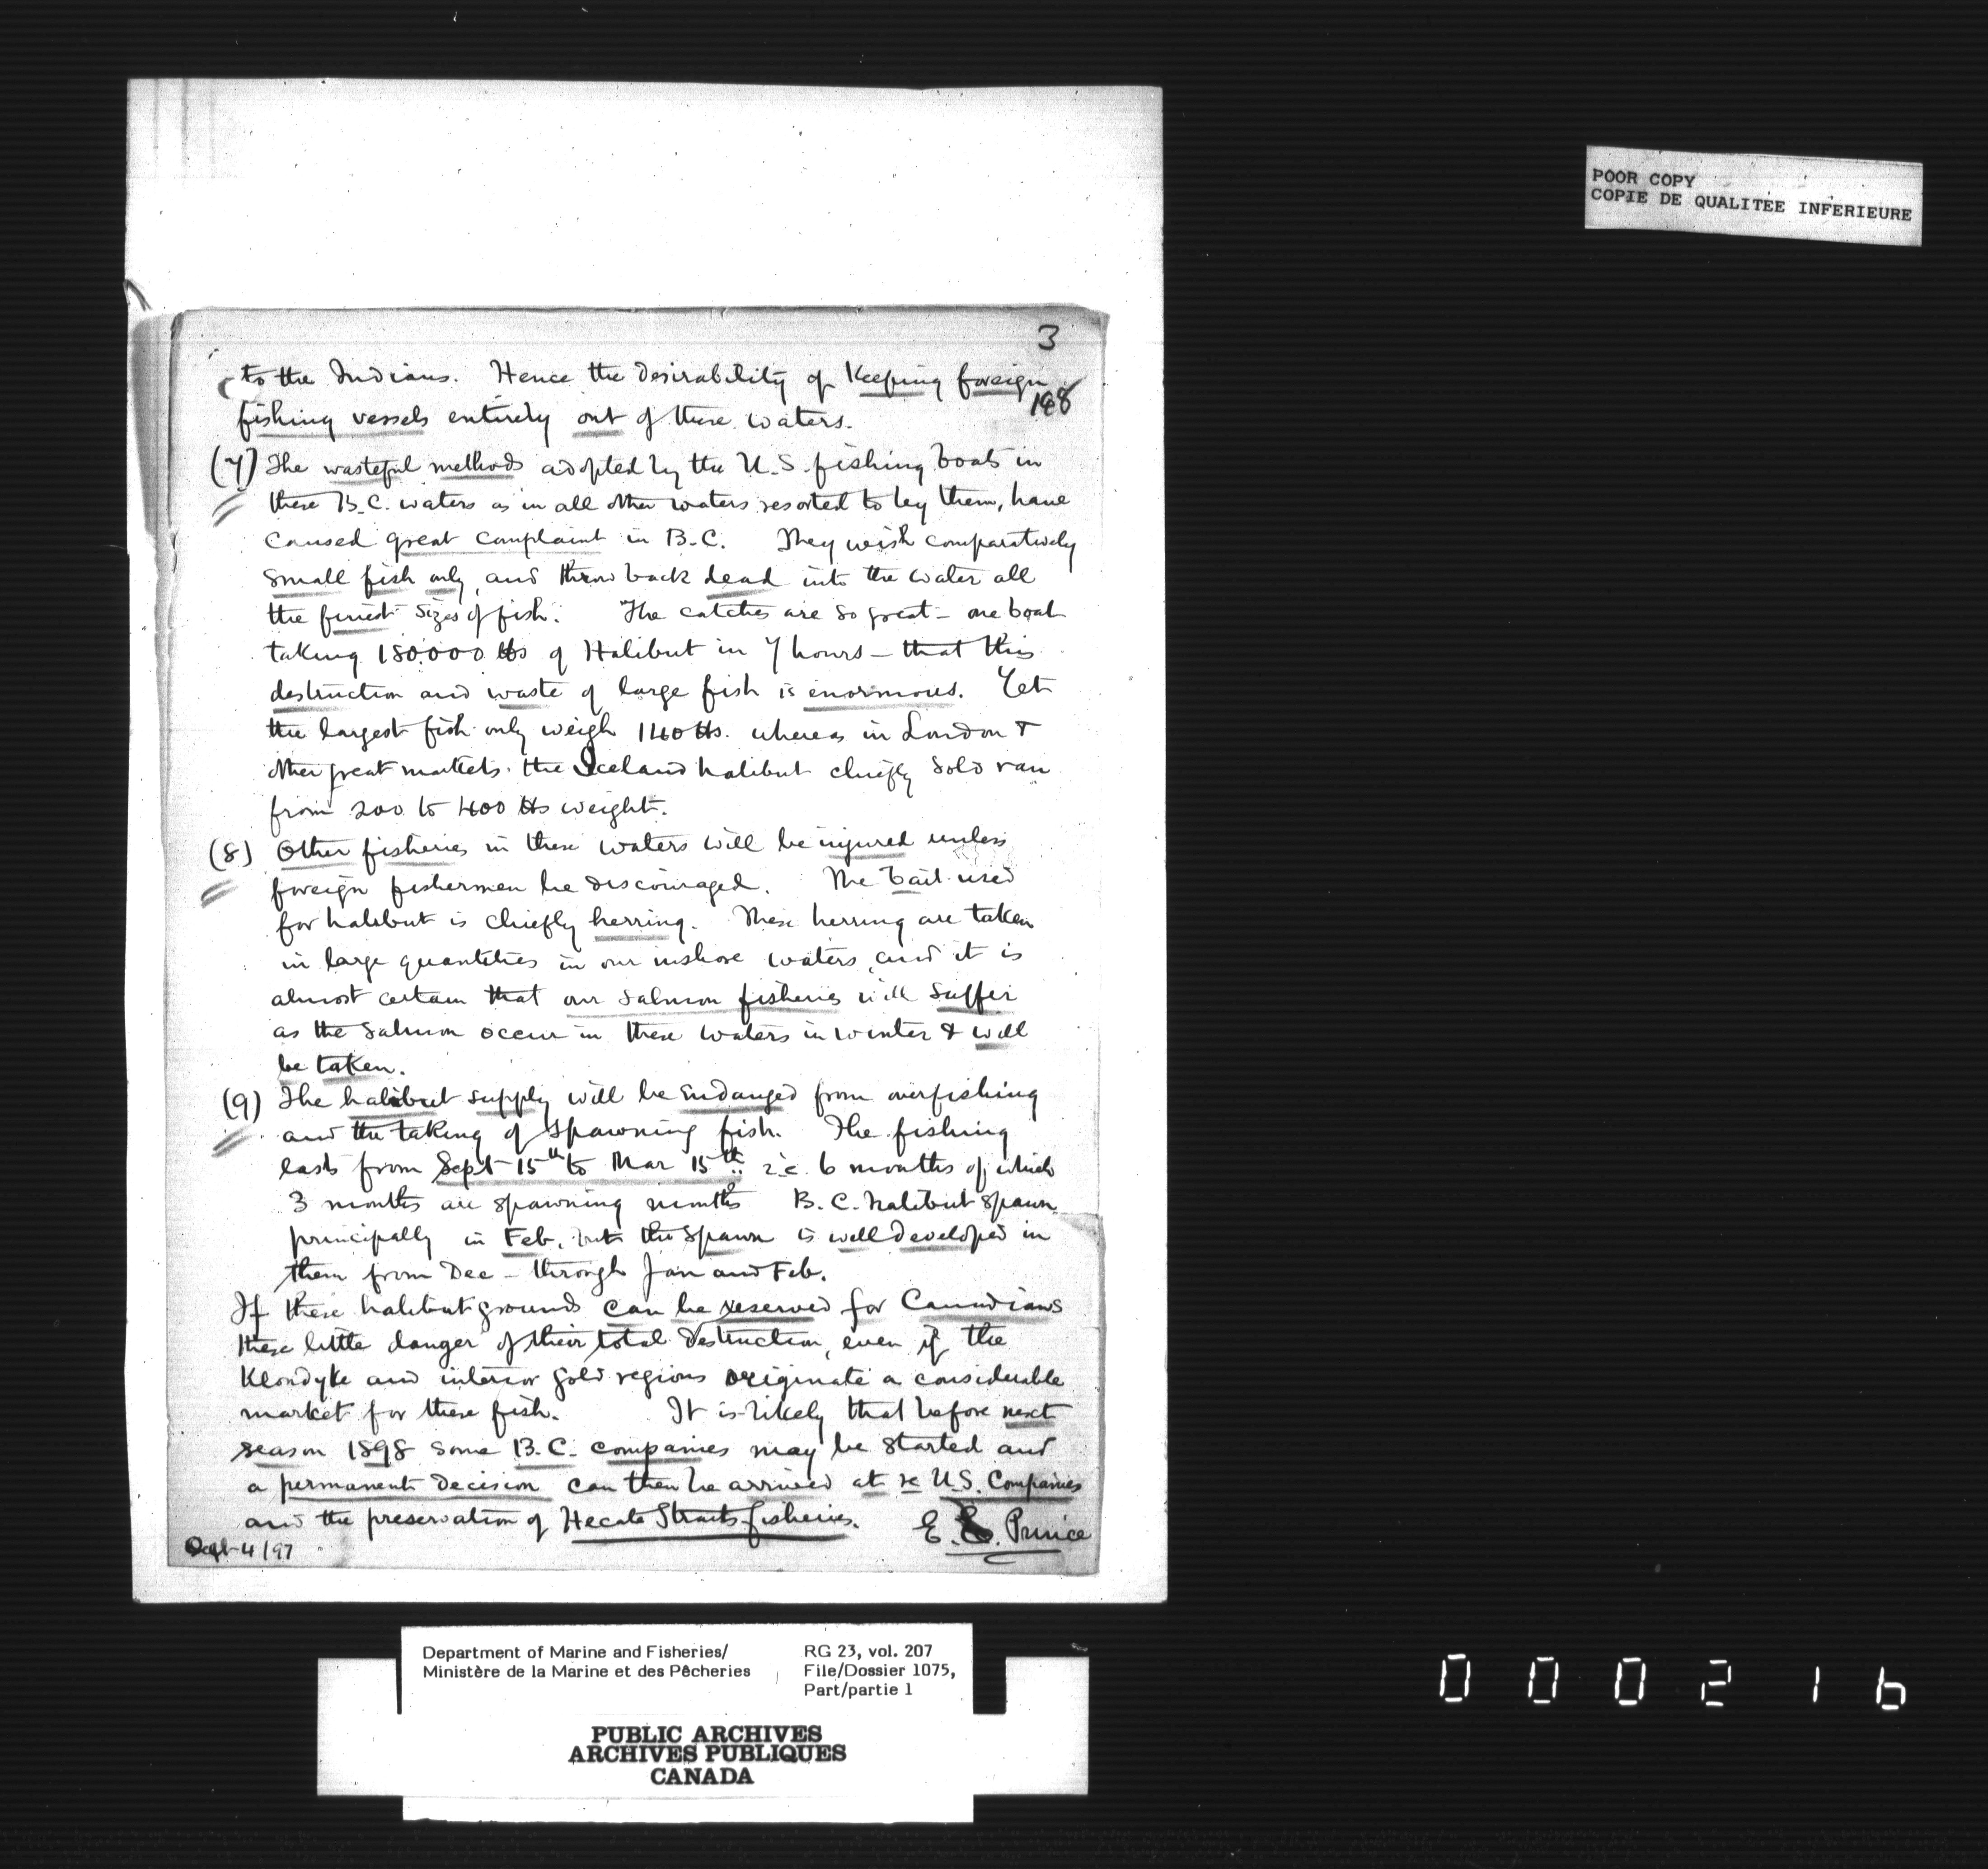 POOR COPY
COPIE DE QUALITEE INFERIEURE
3
198
to the Indians. Hence the desirability of keeping foreign
fishing vessels entirely out of these waters.
(7) The wasteful methods adopted by the U.S. fishing boats in
these B.C. waters as in all other waters resorted to by them, have
caused great complaint in B.C. They wish comparatively
small fish only, and throw back dead into the water all
the finest sizes of fish. The catches are so great - one boat
taking 150.000 lbs of Halibut in 7 hours - that this
destruction and waste of large fish is enormous. Yet
the largest fish only weigh 140 lbs. whereas in London &
other great markets the Iceland halibut chiefly sold van
from 200 to 400 lbs weight.
(8) Other fisheries in these waters will be injured unless
foreign fishermen be discouraged. The bait used
for halibut is chiefly herring. These herring are taken
in large quantities in our inshore waters, and it is
almost certain that our salmon fisheries will suffer
as the salmon occur in these waters in winter & will
be taken.
(9) The halibut supply will be endanged from overfishing
and the taking of spawning fish. The fishing
lasts from Sept 15th to Mar 15th i.e. 6 months of which
3 months are spawning months B.C. halibut spawn
principally in Feb, but the spawn is well developed in
them from Dec - through Jan and Feb.
If these halibut grounds can be reserved for Canadians
these little danger of their total destruction, even if the
Klondyke and interior gold regions originate a considerable
market for these fish. It is likely that before next
season 1898 some B.C. companies may be started and
a permanent decision can then be arrived at re U.S. Companies
and the preservation of Hecate Straits fisheries. E. E. Prince
4/97
Department of Marine and Fisheries/
Ministère de la Marine et des Pêcheries
RG 23, vol. 207
File/Dossier 1075,
Part/partie 1
PUBLIC ARCHIVES
ARCHIVES PUBLIQUES
CANADA
000216